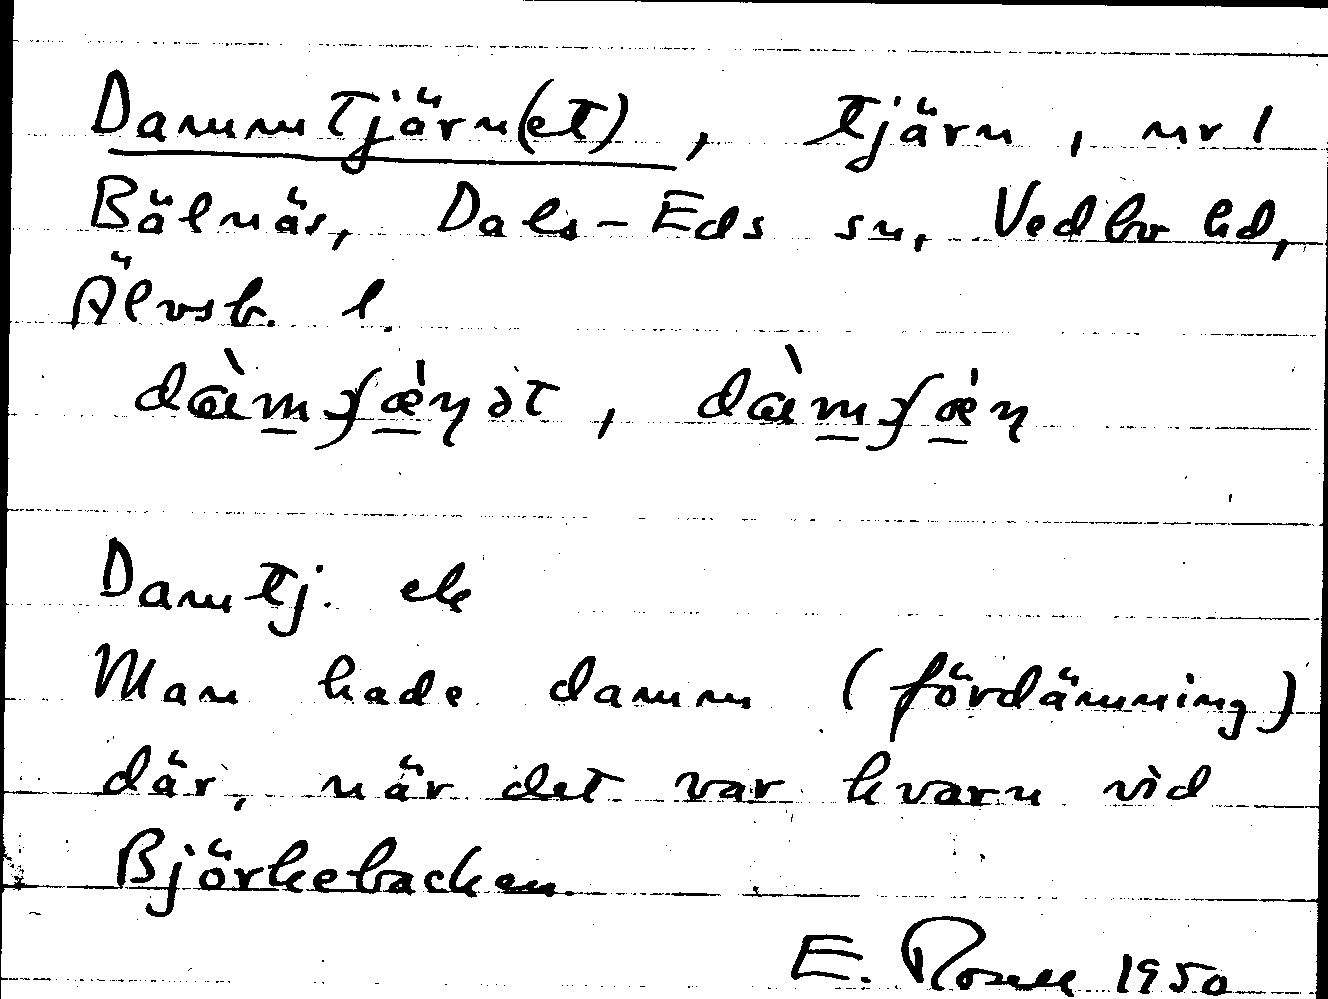 Dammtjärn(et), tjärn, nr 1
Bälnäs, Dals-Eds sn, Vedbo hd,
Älvsb. l.
dàmʃæ̀ɳət, dàmʃæ̀ɳ
Damtj. ek
Man hade damm (fördämning)
där, när det var kvarn vid
Björkebacken.
E. Rosell 1950